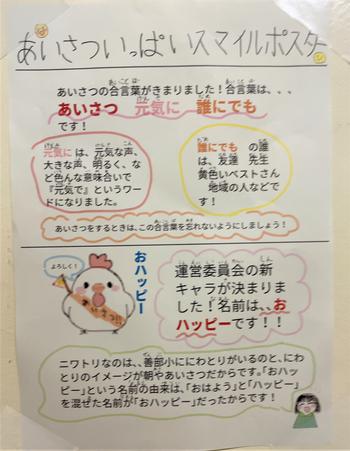 あいさついっぱいスマイルポスター
あいさつの合言葉がきまりました！合言葉は、、、
あいさつ 元気に 誰にでも
です！
元気に は、元気な声、
大きな声、明るく、な
ど色んな意味合いで
『元気で』というワー
ドになりました。
誰にでも の誰
は、友達 先生
黄色いベストさん
地域の人などで
す！
あいさつをするときは、この合言葉を忘れないようにしましょう！
おハッピー
よろしく！
あいさつ!!
運営委員会の新
キャラが決まりま
した！名前は、、お
ハッピーです！！
ニワトリなのは、、善部小ににわとりがいるのと、にわ
とりのイメージが朝やあいさつだからです。「おハッ
ピー」という名前の由来は、「おはよう」と「ハッピー」
を混ぜた名前が「おハッピー」だったからです！